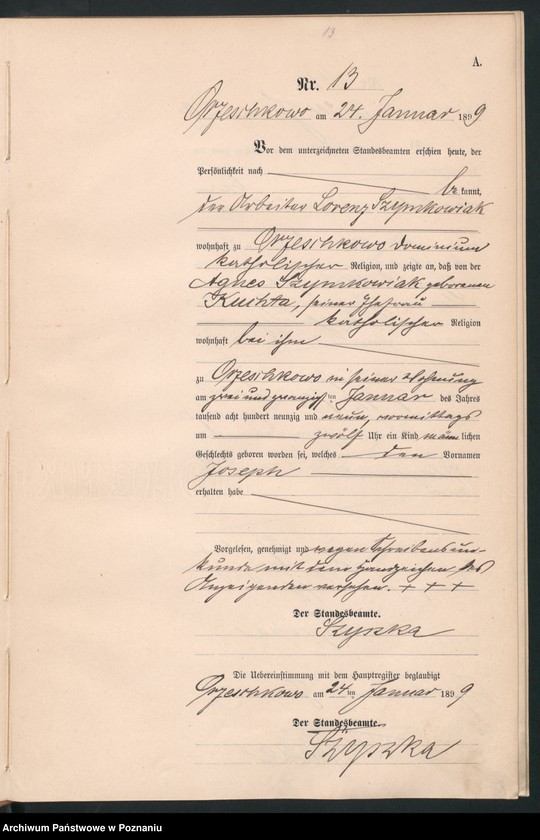 13
A.
Nr. 13
Orzeschkowo am 24. Januar 1899
Vor dem unterzeichneten Standesbeamten erschien heute, der
Persönlichkeit nach
bekannt,
der Arbeiter Lorenz Szymkowiak
wohnhaft zu Orzeschkowo Dominium
katholischer Religion, und zeigte an, daß von der
Agnes Szymkowiak geborenen
Kuchta, seiner Ehefrau
katholischer Religion
wohnhaft bei ihm
zu Orzeschkowo in seiner Wohnung
am drei und zwanzigsten Januar des Jahres
tausend acht hundert neunzig und neun, vormittags
um zwölf Uhr ein Kind männlichen
Geschlechts geboren worden sei, welches den Vornamen
Joseph
erhalten habe
Vorgelesen, genehmigt und wegen Schreibensun-
kunde mit dem Handzeichen des
Anzeigenden versehen. + + +
Der Standesbeamte.
Szyszka
Die Uebereinstimmung mit dem Hauptregister beglaubigt
Orzeschkowo am 24 ten Januar 1899
Der Standesbeamte.
Szyszka
Archiwum Państwowe w Poznaniu